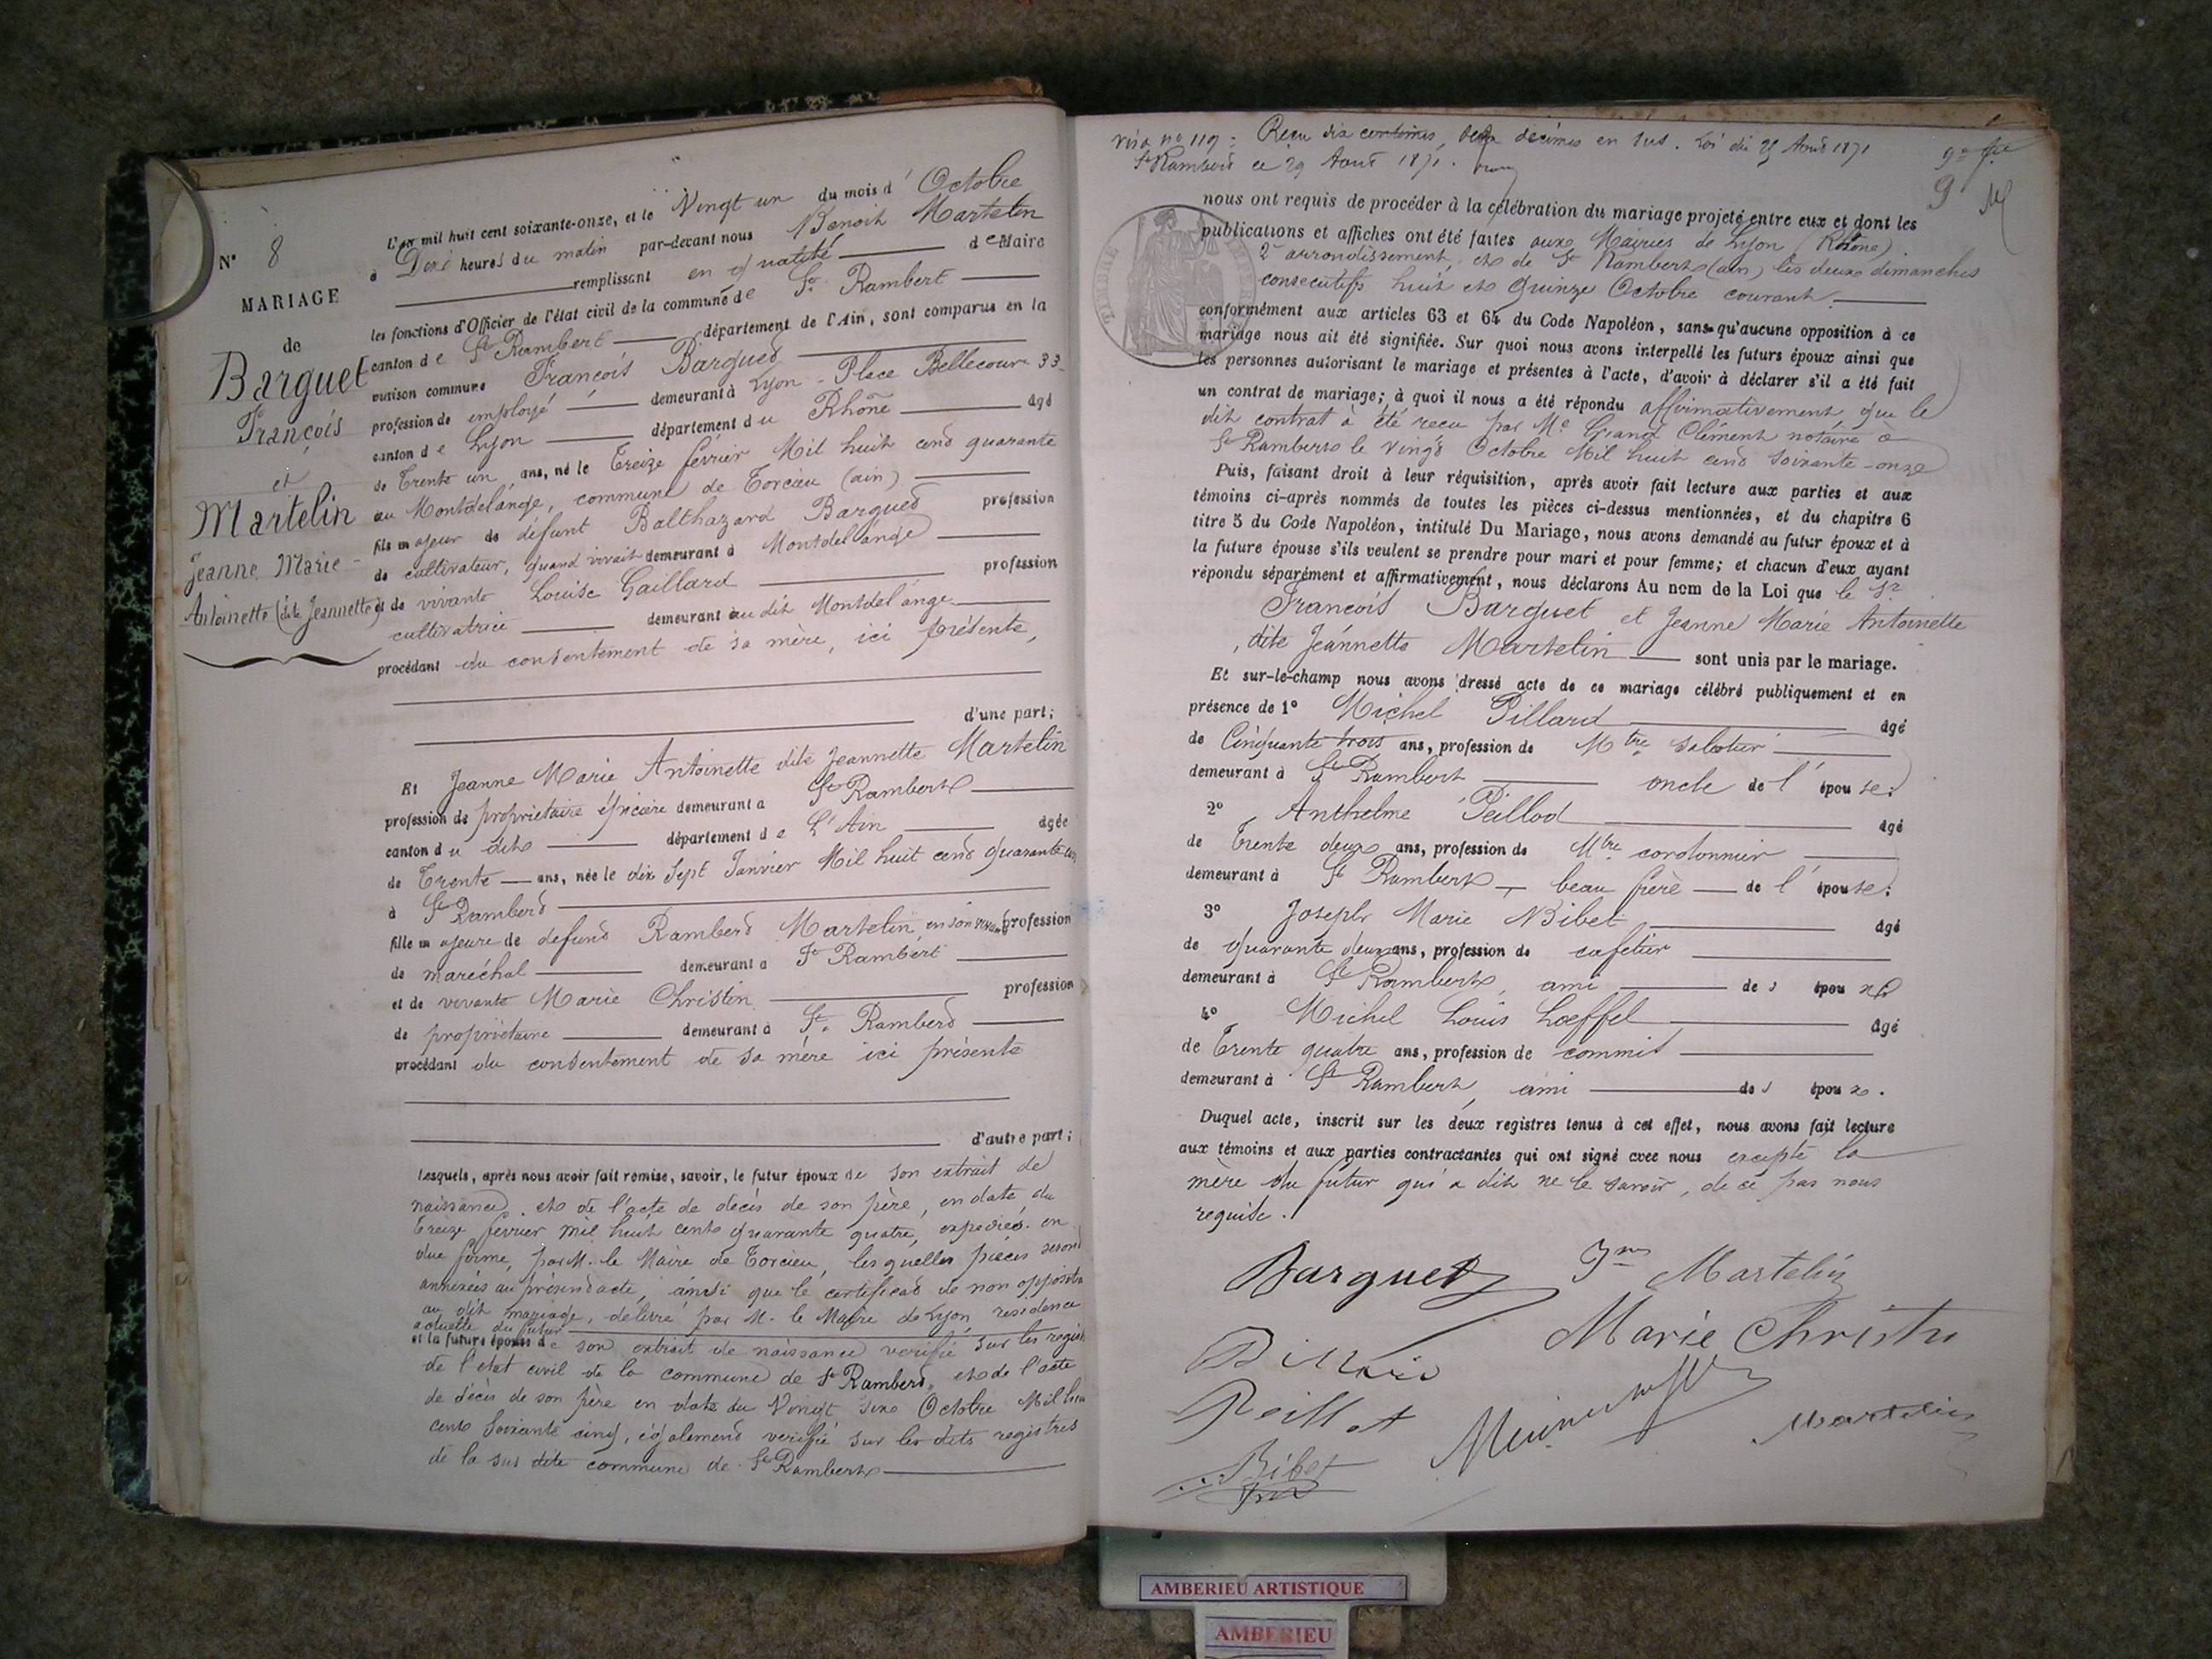 N° 8
MARIAGE
de
Barguet
François
et
Martelin
Jeanne Marie-
Antoinette (dite Jeannette)
L'an mil huit cent soixante-onze, et le Vingt un du mois d' Octobre
à Dix heures du matin par-devant nous Benoit Martelin
remplissant en qualité de Maire
les fonctions d'Officier de l'état civil de la commune de St Rambert
canton de St Rambert département de l'Ain, sont comparus en la
maison commune François Barguet
profession de employé demeurant à Lyon - Place Bellecour 33
canton de Lyon département du Rhône âgé
de Trente un ans, né le Treize février Mil huit cent quarante
au Montdelange, commune de Torcieu (ain)
fils majeur de défunt Balthazard Barguet profession
de cultivateur, quand vivait demeurant à Montdelange
et de vivante Louise Gaillard profession
cultivatrice demeurant au dit Montdelange
procédant du consentement de sa mère, ici présente,
d'une part;
Et Jeanne Marie Antoinette dite Jeannette Martelin
profession de propriétaire épicière demeurant à St Rambert
canton du dit département de L'Ain âgée
de Trente ans, née le dix Sept Janvier Mil huit cent quarante un
à St Rambert
fille majeure de defunt Rambert Martelin, en son vivant profession
de maréchal demeurant à St Rambert
et de vivante Marie Christin profession
de propriétaire demeurant à St. Rambert
procédant du consentement de sa mère ici présente
d'autre part;
Lesquels, après nous avoir fait remise, savoir, le futur époux de son extrait de
naissance, et de l'acte de décès de son père, en date du
treize février mil huit cent quarante quatre, expediés en
due forme, par M. le Maire de Torcieu, les quelles pièces seront
annexées au présent acte, ainsi que le certificat de non opposition
au dit mariage, délivré par M. le Maire de Lyon, résidence
actuelle du futur
et la future épouse de son extrait de naissance verifié sur les registres
de l'état civil de la commune de St Rambert, et de l'acte
de décès de son père en date du Vingt six Octobre Mil huit
cent soixante cinq, également verifié sur les dits registres
de la sus dite commune de St Rambert
visa no 119: Reçu dix centimes, deux decimes en sus. Loi du 23 Aout 1871
St Rambert ce 29 Aout 1871.
9
nous ont requis de procéder à la célébration du mariage projeté entre eux et dont les
publications et affiches ont été faites aux Mairies de Lyon (Rhône)
2e arrondissement, et de St Rambert (ain) les deux dimanches
consecutifs huit et Quinze Octobre courant
TIMBRE IMPERIAL
conformément aux articles 63 et 64 du Code Napoléon, sans qu'aucune opposition à ce
mariage nous ait été signifiée. Sur quoi nous avons interpellé les futurs époux ainsi que
les personnes autorisant le mariage et présentes à l'acte, d'avoir à déclarer s'il a été fait
un contrat de mariage; à quoi il nous a été répondu affirmativement, que le
dit contrat à été recu par Me Grand Clément notaire à
St Rambert le vingt Octobre Mil huit cent soixante-onze
Puis, faisant droit à leur réquisition, après avoir fait lecture aux parties et aux
témoins ci-après nommés de toutes les pièces ci-dessus mentionnées, et du chapitre 6
titre 5 du Code Napoléon, intitulé Du Mariage, nous avons demandé au futur époux et à
la future épouse s'ils veulent se prendre pour mari et pour femme; et chacun d'eux ayant
répondu séparément et affirmativement, nous déclarons Au nom de la Loi que le Sr
François Barguet et Jeanne Marie Antoinette
, dite Jeannette Martelin sont unis par le mariage.
Et sur-le-champ nous avons dressé acte de ce mariage célébré publiquement et en
présence de 1° Michel Pillard âgé
de Cinquante trois ans, profession de Mtre sabotier
demeurant à St Rambert oncle de l'épouse;
2° Anthelme Peillod âgé
de Trente deux ans, profession de Mtre cordonnier
demeurant à St Rambert, beau frère de l'épouse;
3° Joseph Marie Bibet âgé
de quarante deux ans, profession de cafetier
demeurant à St Rambert, ami des époux
4° Michel Louis Loeffel âgé
de Trente quatre ans, profession de commis
demeurant à St Rambert, ami des époux.
Duquel acte, inscrit sur les deux registres tenus à cet effet, nous avons fait lecture
aux témoins et aux parties contractantes qui ont signé avec nous excepté la
mère du futur qui a dit ne le savoir, de ce par nous
requise.
Barguet Jne Martelin
Marie Christin
Peillot
Martelin
Bibet
AMBERIEU ARTISTIQUE
AMBERIEU